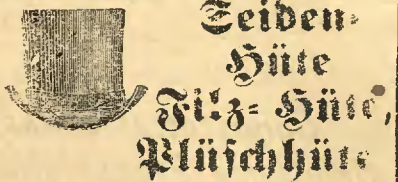 Seiden-
Hüte
Filz- Hüte,
Plüschhüte